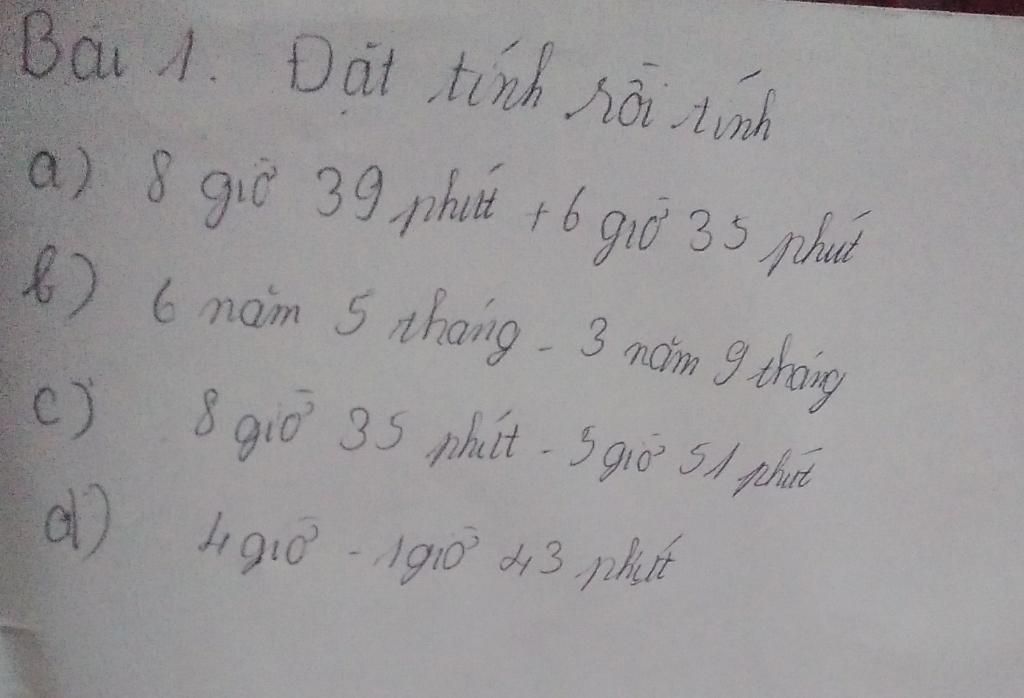 Bài 1. Đặt tính rồi tính
a) 8 giờ 39 phút + 6 giờ 35 phút
b) 6 năm 5 tháng - 3 năm 9 tháng
c) 8 giờ 35 phút - 5 giờ 51 phút
d) 4 giờ - 1 giờ 43 phút